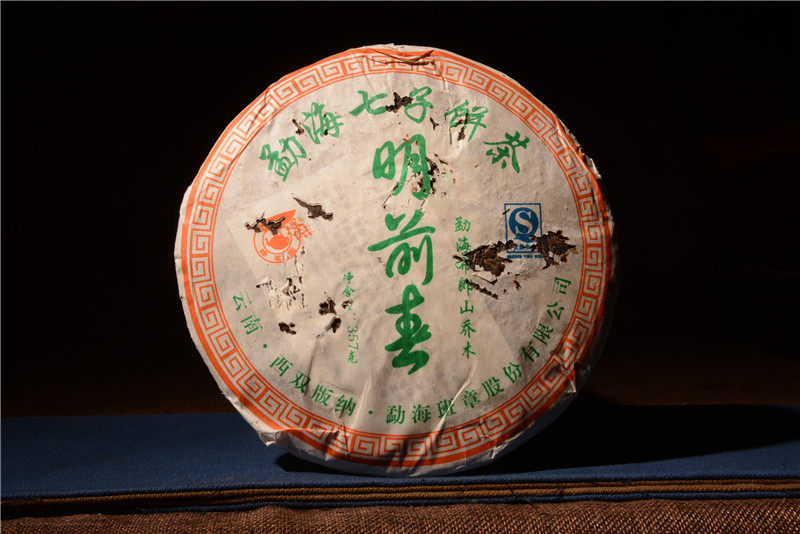 勐海七子饼茶
明前春
勐海布朗山乔木
净含量:357克
云南·西双版纳·勐海班章股份有限公司